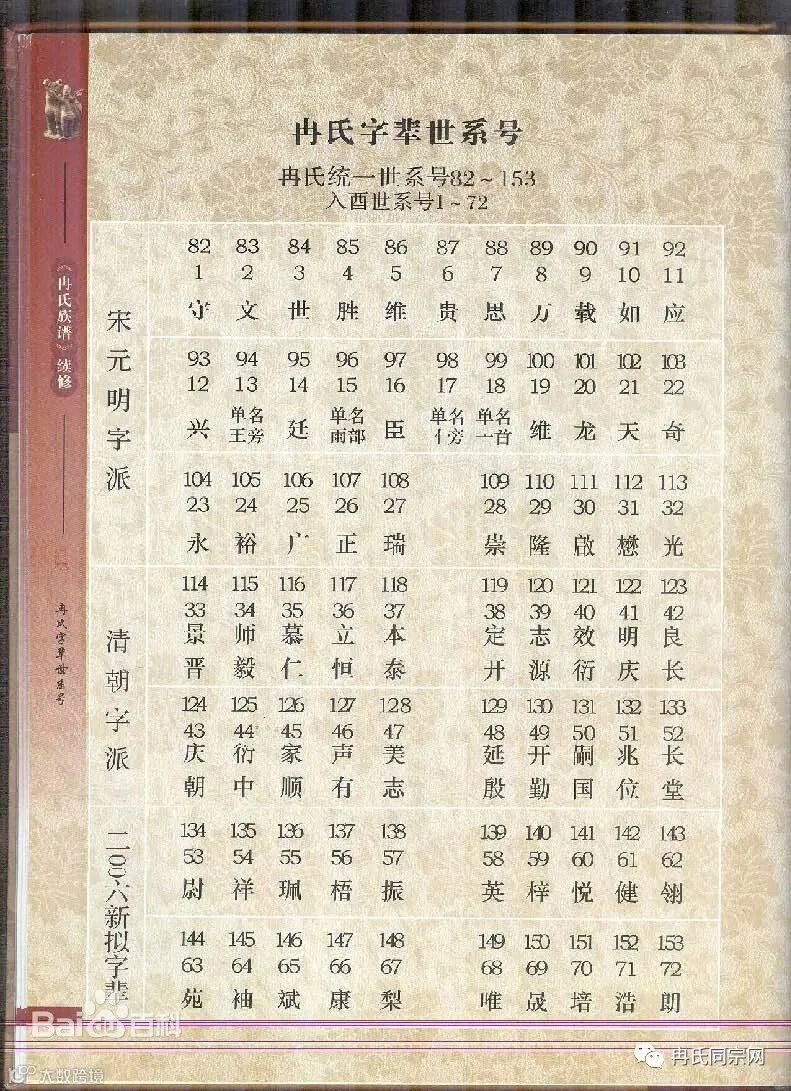 冉氏字辈世系号
冉氏统一世系号82～153
入酉世系号1～72
《冉氏族谱》续修
冉氏字辈世系号
宋元明字派
82 83 84 85 86 87 88 89 90 91 92
1 2 3 4 5 6 7 8 9 10 11
守 文 世 胜 维 贵 思 万 载 如 应
93 94 95 96 97 98 99 100 101 102 103
12 13 14 15 16 17 18 19 20 21 22
兴 单名王旁 廷 单名雨部 臣 单名亻旁 单名一首 维 龙 天 奇
104 105 106 107 108 109 110 111 112 113
23 24 25 26 27 28 29 30 31 32
永 裕 广 正 瑞 崇 隆 啟 懋 光
清朝字派
114 115 116 117 118 119 120 121 122 123
33 34 35 36 37 38 39 40 41 42
景 师 慕 立 本 定 志 效 明 良
晋 毅 仁 恒 泰 开 源 衍 庆 长
124 125 126 127 128 129 130 131 132 133
43 44 45 46 47 48 49 50 51 52
庆 衍 家 声 美 延 开 嗣 兆 长
朝 中 顺 有 志 殷 勤 国 位 堂
二00六新拟字辈
134 135 136 137 138 139 140 141 142 143
53 54 55 56 57 58 59 60 61 62
尉 祥 珮 梧 振 英 梓 悦 健 翎
144 145 146 147 148 149 150 151 152 153
63 64 65 66 67 68 69 70 71 72
苑 袖 斌 康 梨 唯 晟 培 浩 朗
Baidu百科
冉氏同宗网
大数跨境